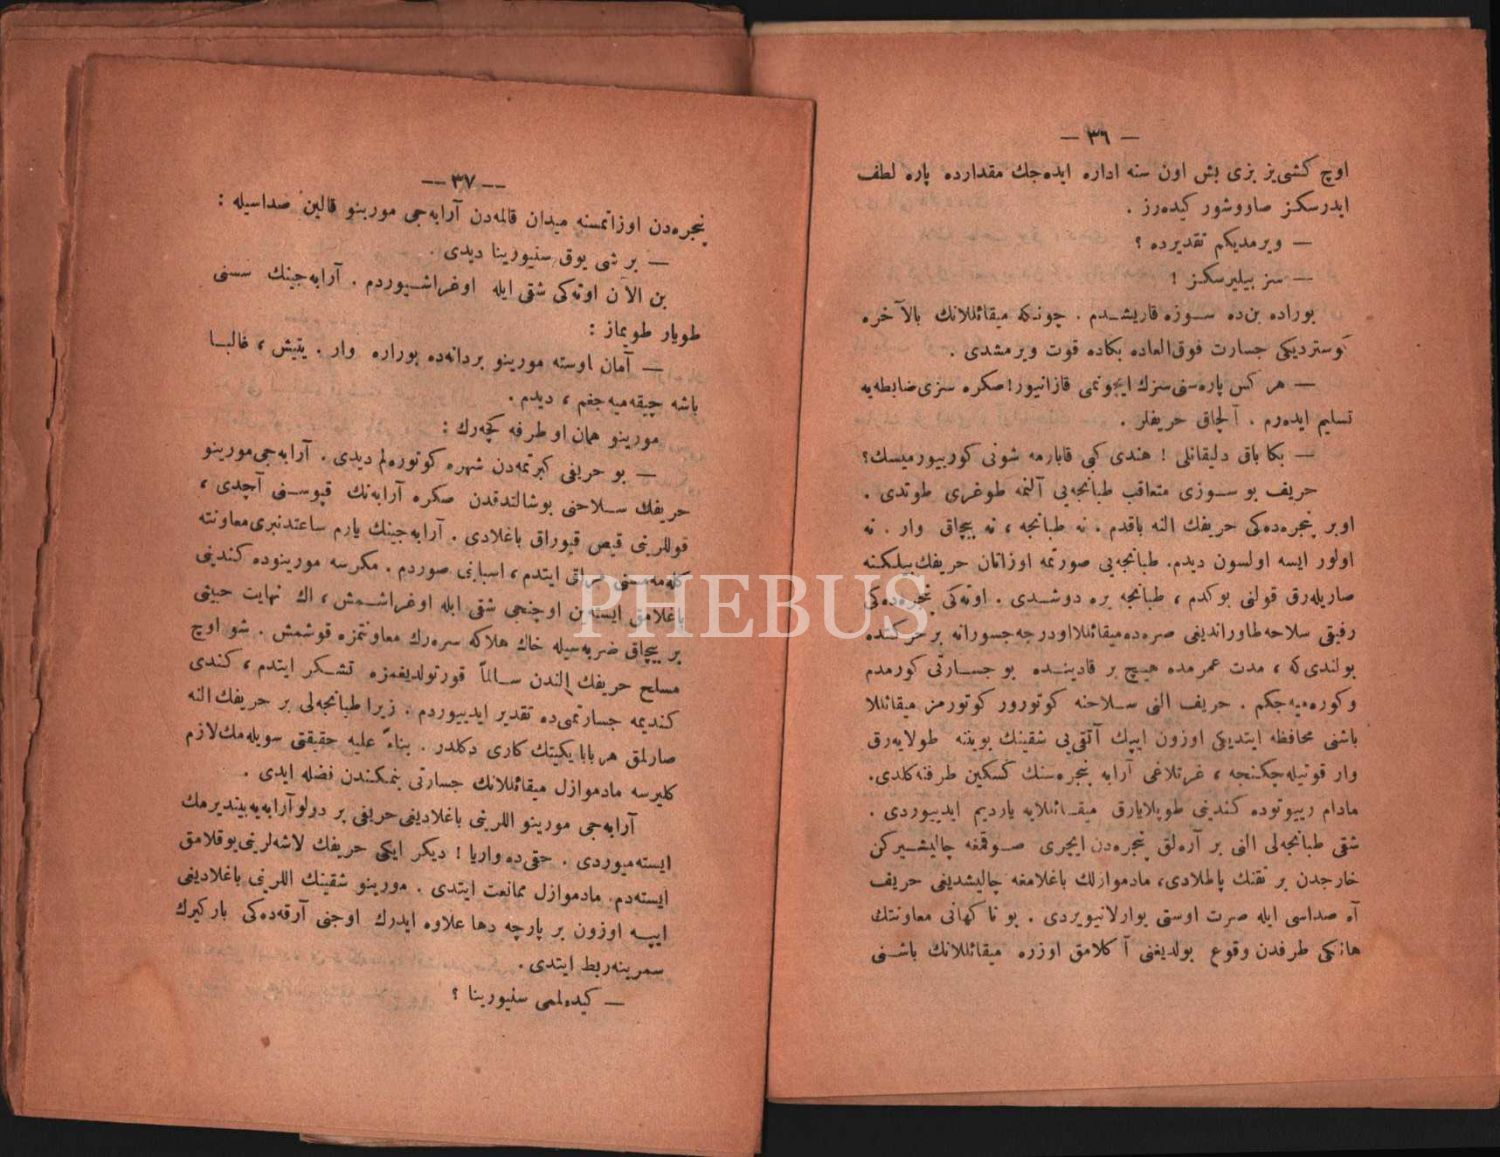 — ٣٦ —
اوچ كشی‌یز بزی بش اون سنه اداره ایده‌جك مقدارده پاره لطف
ایدرسكز صاووشور كیده‌رز .
— ویرمدیكم تقدیرده ؟
— سز بیلیرسكز !
بوراده بن‌ده سوزه قاریشدم . چونكه میقائللانك بالآخره
كوستردیكی جسارت فوق‌العاده بكاده قوت ویرمشدی .
— هر كس پاره‌سنی سزك ایچونمی قازانیور! صكره سزی ضابطه‌یه
تسلیم ایده‌رم . آلچاق حریفلر .
— بكا باق دلیقانلی ! هندی كبی قابارمه شونی كوریورمیسك؟
حریف بو سوزی متعاقب طبانجه‌یی آلنمه طوغری طوتدی .
اوبر پنجره‌ده‌كی حریفك النه باقدم . نه طبانجه ، نه بیچاق وار . نه
اولور ایسه اولسون دیدم. طبانجه‌یی صورتمه اوزاتان حریفك بیلكنه
صاریله‌رق قولنی بوكدم ، طبانجه یره دوشدی . اوته‌كی پنجره‌ده‌كی
رفیقی سلاحه طاوراندیغی صره‌ده میقائللا اودرجه جسورانه بر حركتده
بولندی كه ، مدت عمرمده هیچ بر قادینده بو جسارتی كورمدم
وكوره‌میه‌جكم . حریف النی سلاحنه كوتورور كوتورمز میقائللا
باشنی محافظه ایتدیكی اوزون ایپك آتقی‌یی شقینك بویننه طولایه‌رق
وار قوتیله چكنجه ، غرتلاغی آرابه پنجره‌سنك كسكین طرفنه كلدی.
مادام ریبوتوده كندینی طوپلایارق میقائللایه یاردیم ایدییوردی .
شقی طبانجه‌لی النی بر آره‌لق پنجره‌دن ایچری صوقمغه چالیشیركن
خارجدن بر تفنك پاطلادی، مادموازلك باغلامغه چالیشدیغی حریف
آه صداسی ایله صرت اوستی یوارلانیویردی . بو ناكهانی معاونتك
هانكی طرفدن وقوع بولدیغنی آكلامق اوزره میقائللانك باشنی
— ٣٧ —
پنجره‌دن اوزاتمسنه میدان قالمه‌دن آرابه‌جی مورینو قالین صداسیله :
— بر شی یوق سنیورینا دیدی .
بن الآن اوته‌كی شقی ایله اوغراشیوردم . آرابه‌جینك سسنی
طویار طویماز :
— آمان اوسته مورینو بردانه‌ده بوراره وار . یتیش ، غالبا
باشه چیقه‌میه‌جغم ، دیدم .
مورینو همان او طرفه كچه‌رك :
— بو حریفی كبرتمه‌دن شهره كوتوره‌لم دیدی . آرابه‌جی مورینو
حریفك سلاحنی بوشالندقدن صكره آرابه‌نك قپوسنی آچدی ،
قوللرینی قیص قیوراق باغلادی . آرابه‌جینك یارم ساعتدنبری معاونته
كله‌مه‌مسنی مراق ایتدم ، اسبابنی صوردم . مكرسه مورینوده كندینی
باغلامق ایسته‌ین اوچنجی شقی ایله اوغراشمش ، اك نهایت حیثی
بر بیچاق ضربه‌سیله خاك هلاكه سره‌رك معاونتمزه قوشمش . شو اوچ
مسلح حریفك الندن سالماً قورتولدیغمزه تشكر ایتدم ، كندی
كندیمه جسارتمی‌ده تقدیر ایدییوردم . زیرا طبانجه‌لی بر حریفك النه
صارلمق هر بابا یكیتك كاری دكلدر . بناءً علیه حقیقتی سویله‌مك لازم
كلیرسه مادموازل میقائللانك جسارتی بنمكندن فضله ایدی .
آرابه‌جی مورینو اللرینی باغلادیغی حریفی بر درلو آرابه‌یه بیندیرمك
ایسته‌میوردی . حتی‌ده واریا ! دیكر ایكی حریفك لاشه‌لرینی یوقلامق
ایسته‌دم. مادموازل ممانعت ایتدی . مورینو شقینك اللرینی باغلادیغی
ایپه اوزون بر پارچه دها علاوه ایدرك اوجنی آرقه‌ده‌كی باركیرك
سمرینه ربط ایتدی .
— كیده‌لممی سنیورینا ؟
PHEBUS